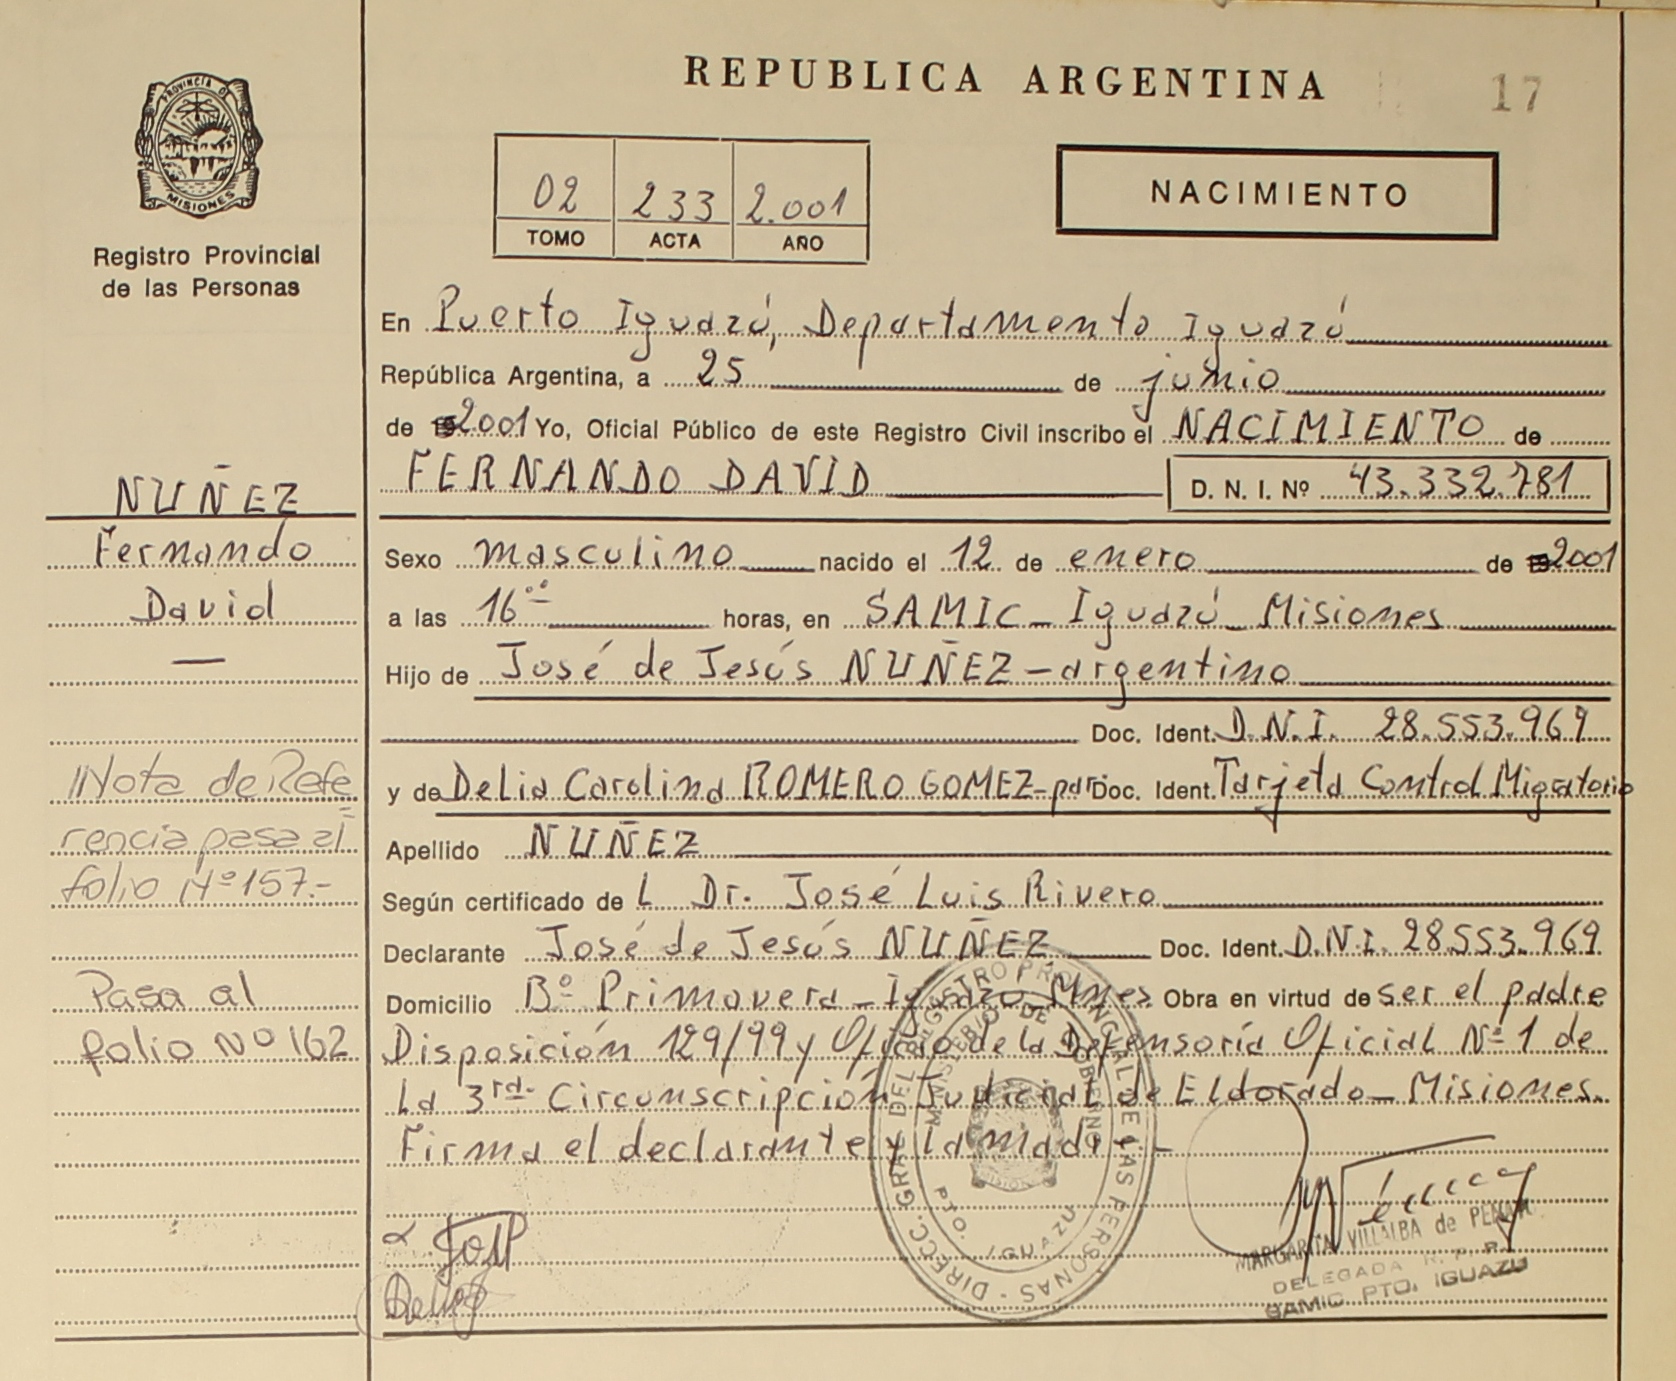 REPUBLICA ARGENTINA
17
PROVINCIA DE
MISIONES
Registro Provincial
de las Personas
02 233 2.001
TOMO ACTA AÑO
NACIMIENTO
En Puerto Iguazú, Departamento Iguazú
República Argentina, a 25 de junio
de 2001 Yo, Oficial Público de este Registro Civil inscribo el NACIMIENTO de
FERNANDO DAVID D. N. I. Nº 43.332.781
Sexo masculino nacido el 12 de enero de 2001
a las 16 horas, en SAMIC - Iguazú - Misiones
Hijo de José de Jesús NUÑEZ - argentino
Doc. Ident. D.N.I. 28.553.969
y de Delia Carolina ROMERO GOMEZ - par Doc. Ident. Tarjeta Control Migratorio
Apellido NUÑEZ
Según certificado de L Dr. José Luis Rivero
Declarante José de Jesús NUÑEZ Doc. Ident. D.N.I. 28.553.969
Domicilio Bº Primavera - Iguazú Mnes Obra en virtud de ser el padre
Disposición 129/99 y Oficio de la Defensoría Oficial Nº 1 de
la 3ra Circunscripción Judicial de Eldorado - Misiones.
Firma el declarante y la madre -
NUÑEZ
Fernando
David
—
//Nota de Refe
rencia pasa al
folio Nº 157.-
Pasa al
folio Nº 162
DIRECC. GRAL DEL REGISTRO PROVINCIAL DE LAS PERSONAS
MINISTERIO DE GOBIERNO
PTO. IGUAZU
MARGARITA VILLALBA de
DELEGADA R. P. P.
SAMIC PTO. IGUAZU